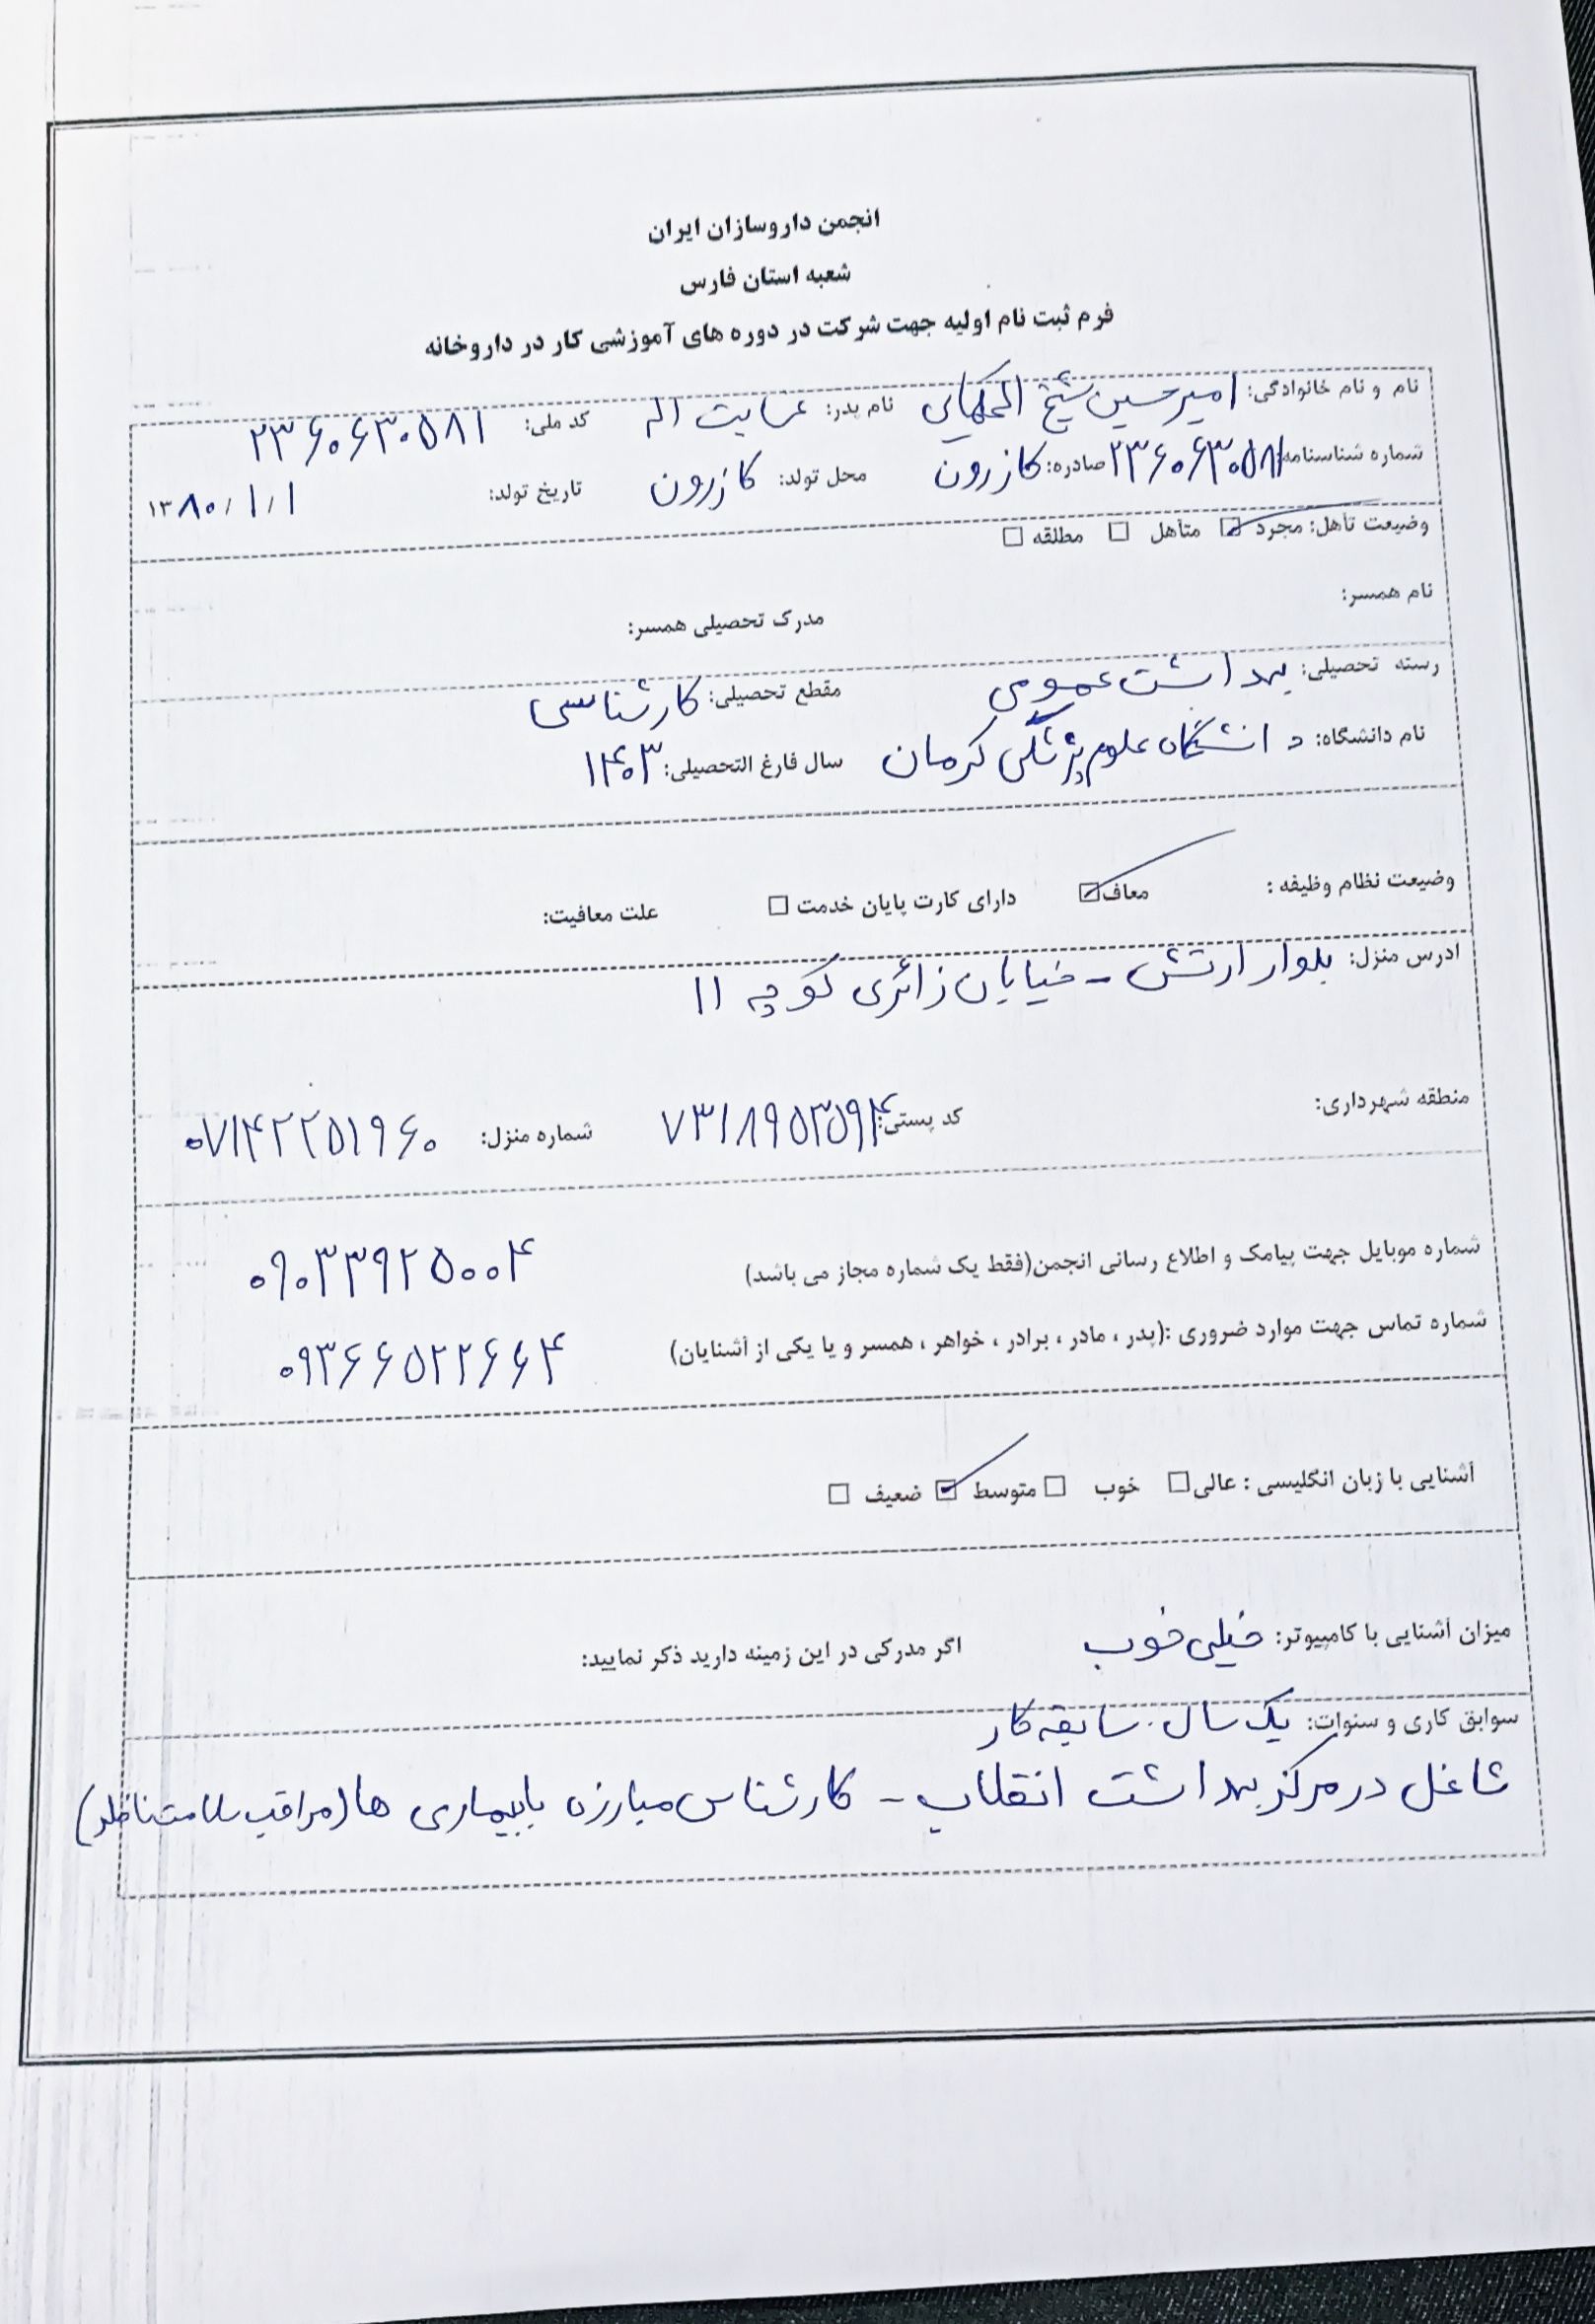 انجمن داروسازان ایران
شعبه استان فارس
فرم ثبت نام اولیه جهت شرکت در دوره های آموزشی کار در داروخانه
نام و نام خانوادگی: امیرحسین شیخ الحکمایی نام پدر: عنایت اله کد ملی: ۲۳۶۰۶۳۰۵۸۱
شماره شناسنامه: ۲۳۶۰۶۳۰۵۸۱ صادره: کازرون محل تولد: کازرون تاریخ تولد: ۱۳۸۰/۱/۱
وضیعت تأهل: مجرد ☑ متأهل ☐ مطلقه ☐
نام همسر: مدرک تحصیلی همسر:
رسته تحصیلی: بهداشت عمومی مقطع تحصیلی: کارشناسی
نام دانشگاه: دانشگاه علوم پزشکی کرمان سال فارغ التحصیلی: ۱۴۰۳
وضیعت نظام وظیفه : معاف ☑ دارای کارت پایان خدمت ☐ علت معافیت:
ادرس منزل: بلوار ارتش - خیابان زائری کوچه ۱۱
منطقه شهرداری: کد پستی: ۷۳۱۸۹۵۳۵۹۴ شماره منزل: ۰۷۱۴۲۲۵۱۹۶۰
شماره موبایل جهت پیامک و اطلاع رسانی انجمن(فقط یک شماره مجاز می باشد) ۰۹۰۳۳۹۲۵۰۰۴
شماره تماس جهت موارد ضروری :(پدر ، مادر ، برادر ، خواهر ، همسر و یا یکی از آشنایان) ۰۹۳۶۶۵۲۲۶۶۴
آشنایی با زبان انگلیسی : عالی ☐ خوب ☐ متوسط ☑ ضعیف ☐
میزان آشنایی با کامپیوتر: خیلی خوب اگر مدرکی در این زمینه دارید ذکر نمایید:
سوابق کاری و سنوات: یک سال سابقه کار
شاغل در مرکز بهداشت انقلاب - کارشناس مبارزه با بیماری ها (مراقب سلامت ناظر)